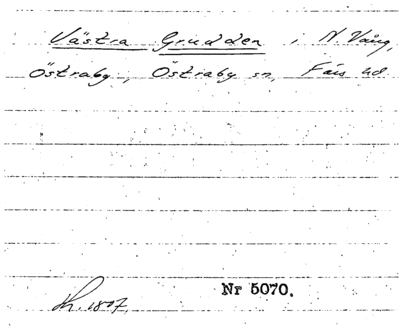 Västra Grudden i N. Vång,
Östraby, Östraby sn, Färs hd
Nr 5070.
Sk. 1807.